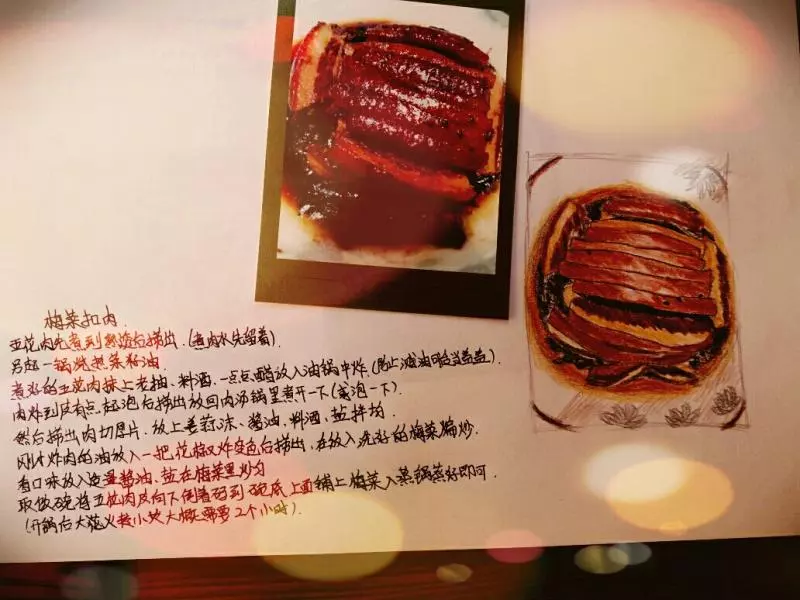 梅菜扣肉.
五花肉先煮到熟透后捞出.(煮肉水先留着)
另起一锅烧热菜籽油.
煮好的五花肉抹上老抽.料酒.一点点醋放入油锅中炸(防止溅油可盖当盖盖)
肉炸到皮有点起泡后捞出放回肉汤锅里煮开一下(或泡一下).
然后捞出肉切厚片.放上姜蒜沫、酱油、料酒、盐拌均.
刚才炸肉的油放入一把花椒炸变色后捞出.在放入洗好的梅菜煸炒.
看口味放入适量酱油、盐在梅菜里炒匀
取碗将五花肉皮向下倒着码到碗底上面铺上梅菜入蒸锅蒸好即可.
(开锅后大花火转小火大概需要2个小时).